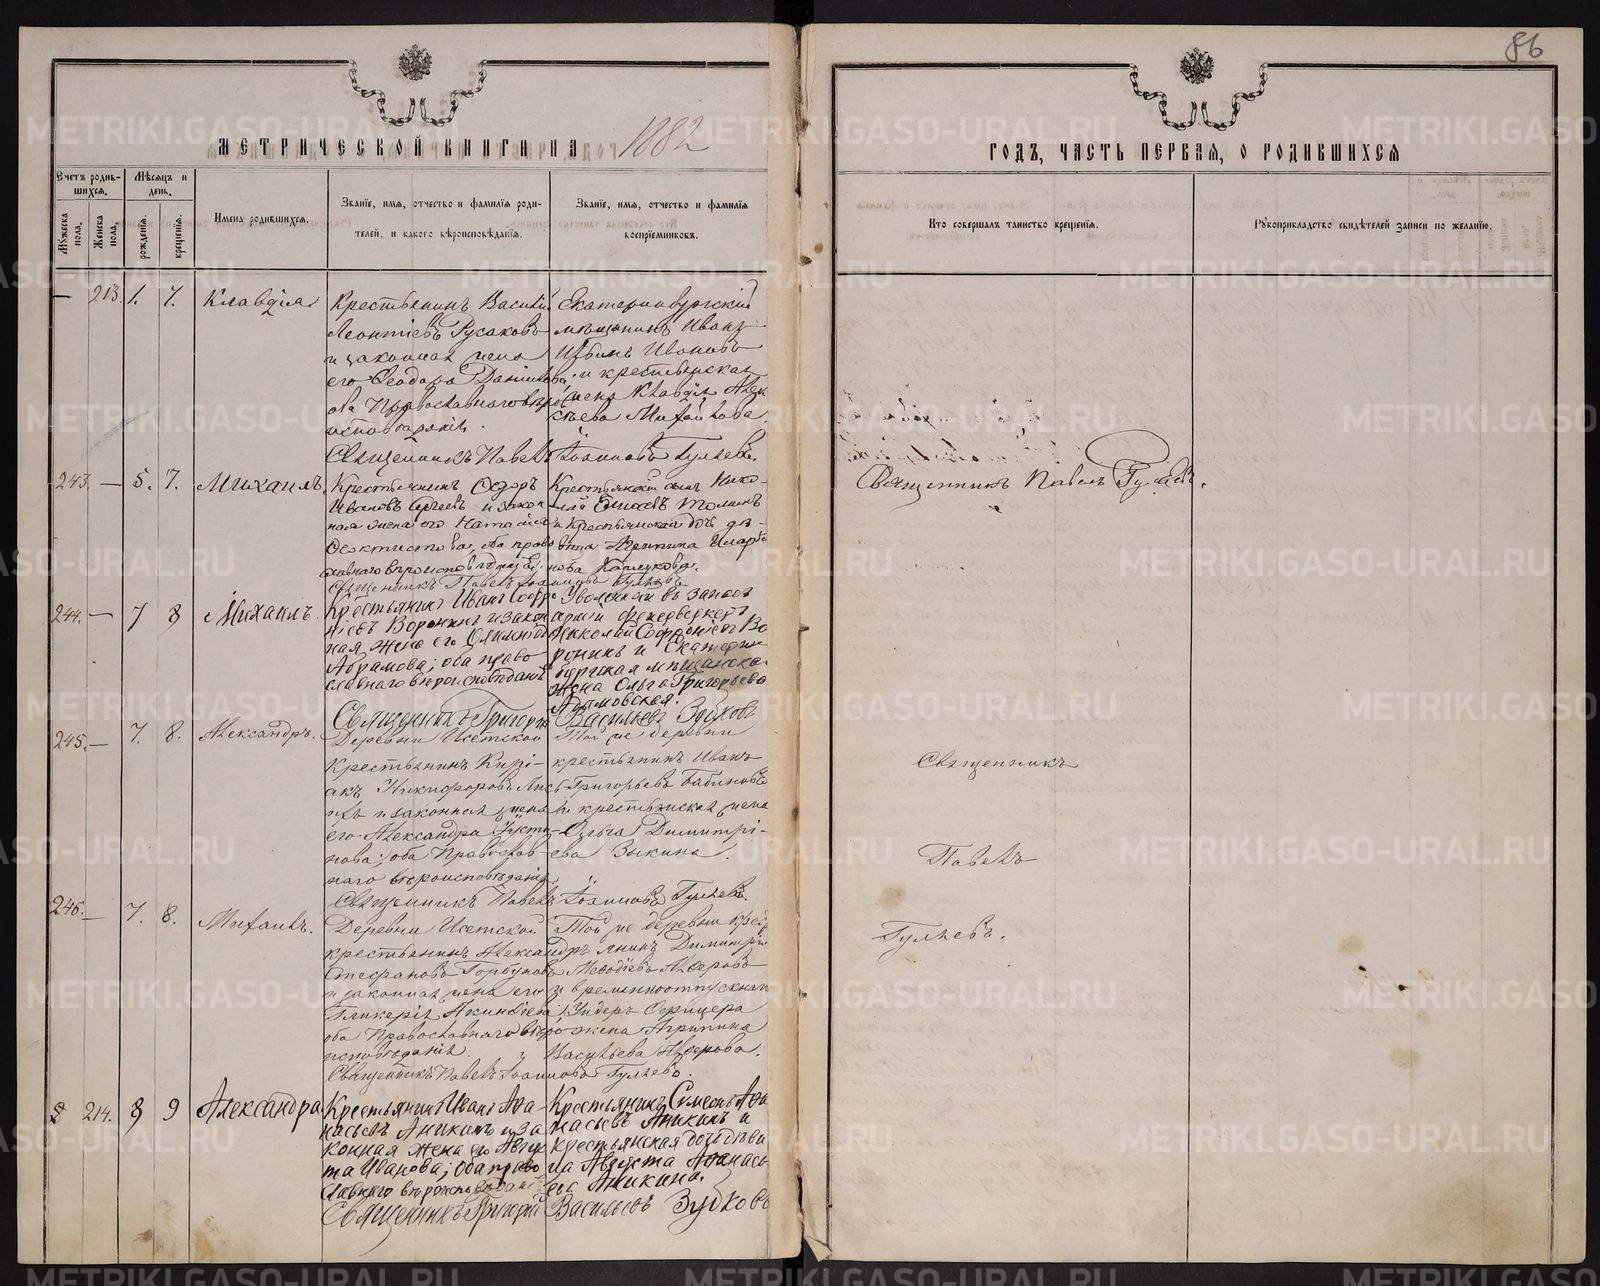 86
МЕТРИЧЕСКОЙ КНИГИ НА 1882
ГОДЪ, ЧАСТЬ ПЕРВАЯ, О РОДИВШИХСЯ
Счетъ родившихся.
Мѣсяцъ и день.
Мужеска пола.
Женска пола.
рожденія.
крещенія.
Имена родившихся.
Званіе, имя, отчество и фамилія роди-
телей, и какого вѣроисповѣданія.
Званіе, имя, отчество и фамилія
воспріемниковъ.
Кто совершалъ таинство крещенія.
Рукоприкладство свидѣтелей записи по желанію.
— 213. 1. 7. Клавдія
Крестьянинъ Василій
Леонтіевъ Русаковъ
и законная жена
его Ѳеодора Данилова;
оба Православнаго вѣро
исповѣданія.
Екатеринбургскій
мѣщанинъ Иванъ
Ивановъ
и крестьянская
жена Клавдія Алек
сѣева Михайлова.
Священникъ Павелъ Іоанновъ Гуляевъ.
243. — 5. 7. Михаилъ.
Крестьянинъ Ѳедоръ
Ивановъ Сергеевъ и закон
ная жена его Наталія
Ѳеоктистова, оба право
славнаго вѣроисповѣданія
Крестьянскій сынъ Нико-
лай
и Крестьянская дочь дѣ-
вица Агрипина Илларіо
нова
Священникъ Павелъ Іоанновъ Гуляевъ
Священникъ Павелъ Гуляевъ.
244. — 7 8 Михаилъ.
Крестьянинъ Иванъ Софро
ніевъ Воронинъ и закон
ная жена его
Абрамова; оба право
славнаго вѣроисповѣданія
Уволенный въ запасъ
арміи фейерверкеръ
Николай Софроніевъ Во
ронинъ и Екатерин
бургская мѣщанская
жена Ольга Григорьева
Священникъ Григорій Васильевъ Зубковъ
245. — 7. 8. Александръ.
Деревни Исетской
Крестьянинъ Кирі-
акъ Никифоровъ Лись
и законная жена
его Александра Густи-
нова; оба Православ-
наго вѣроисповѣданія
Той же деревни
крестьянинъ Иванъ
Григорьевъ Бабиновъ
и крестьянская жена
Ольга Димитрі-
ева Зыкина.
Священникъ Павелъ Іоанновъ Гуляевъ.
Священникъ
Павелъ
Гуляевъ.
246. — 7. 8. Михаилъ.
Деревни Исетской
крестьянинъ Александръ
Стефановъ Горбуновъ
и законная жена его
Гликерія Акинѳіева;
оба Православнаго вѣро
исповѣданія.
Той же деревни крест
янинъ Димитрій
Меѳодіевъ Алферовъ
и временноотпускная
Ундеръ Офицера
жена Агрипина
Васильева Алферова.
Священникъ Павелъ Іоанновъ Гуляевъ.
214. 8 9 Александра
Крестьянинъ Иванъ Аѳа-
насьевъ Аникинъ и за
конная жена его Авгус
та Иванова; оба право
славнаго вѣроисповѣданія
Крестьянинъ Симеонъ Аѳа
насьевъ Аникинъ и
крестьянская дочь дѣви
ца Августа Аѳанась
ева Аникина.
Священникъ Григорій Васильевъ Зубковъ
METRIKI.GASO-URAL.RU